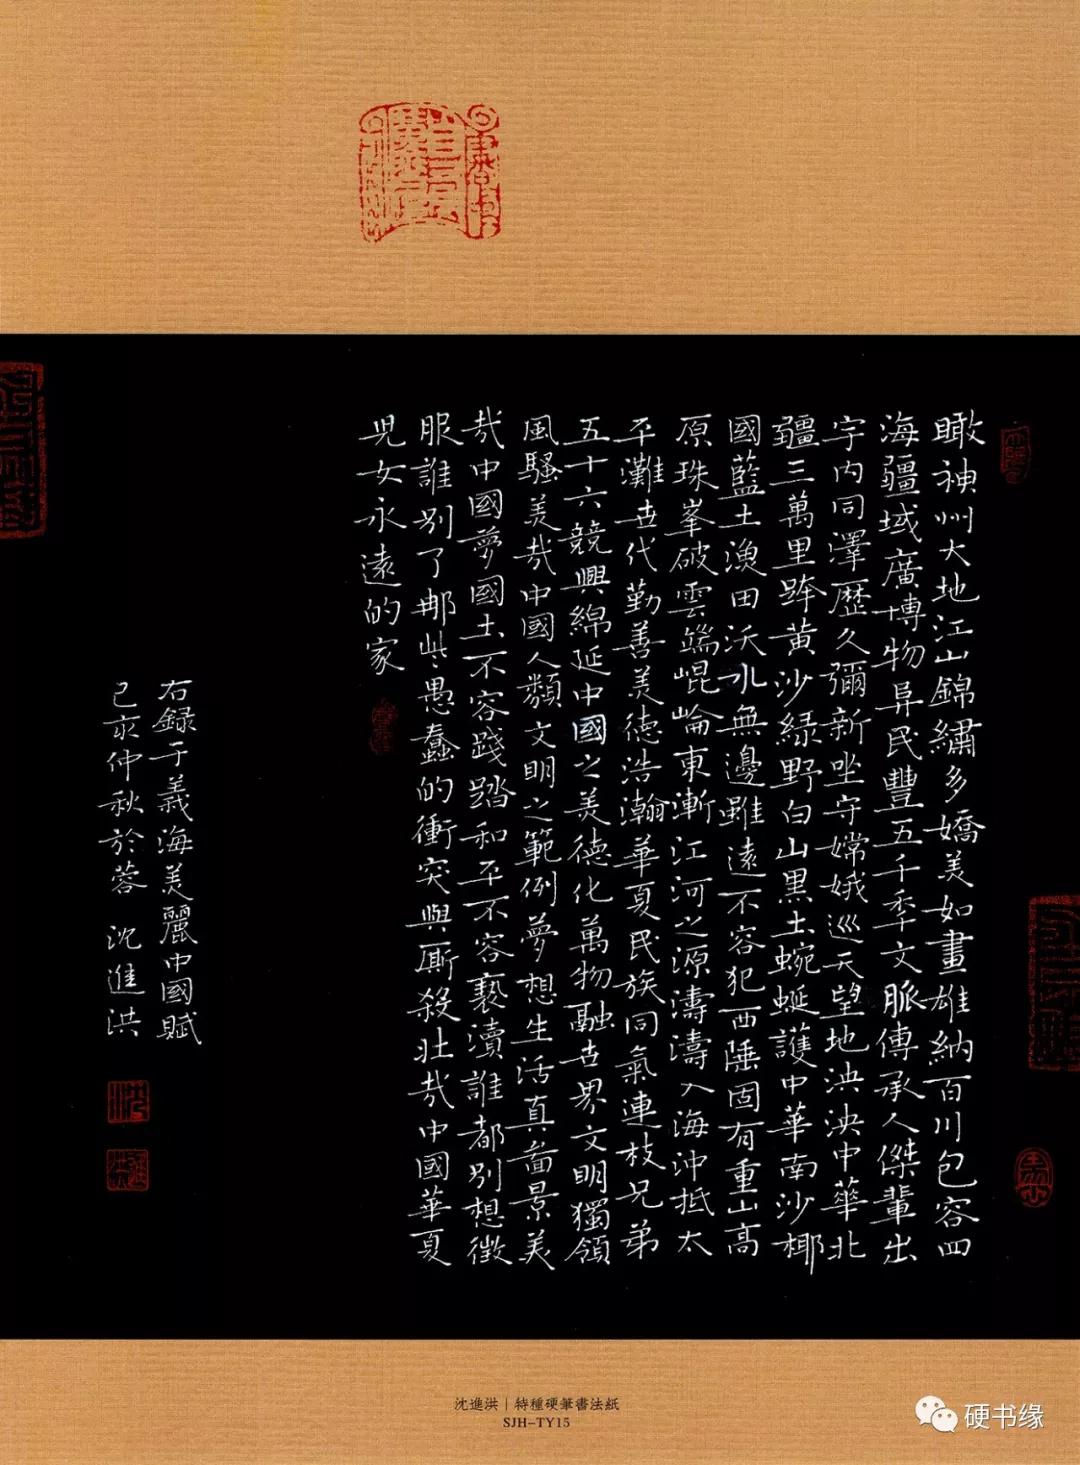 瞰神州大地江山錦繡多嬌美如畫雄納百川包容四
海疆域廣博物异民豐五千季文脈傳承人傑輩出
宇内同澤歷久彌新坐守嫦娥巡天望地泱泱中華北
疆三萬里跨黄沙緑野白山黑土蜿蜒護中華南沙椰
國藍土漁田沃水無邊雖遠不容犯西陲固有重山高
原珠峯破雲端崐崙東漸江河之源濤濤入海沖抵太
平灘世代勤善美德浩瀚華夏民族同氣連枝兄弟
五十六競興綿延中國之美德化萬物融世界文明獨領
風騷美哉中國人類文明之範例夢想生活真啚景美
哉中國夢國土不容踐踏和平不容褻瀆誰都别想徵
服誰别了那些愚蠢的衝突與厮殺壯哉中國華夏
兒女永遠的家
右録于義海美麗中國賦
己亥仲秋於蓉 沈進洪
沈進洪｜特種硬筆書法紙
SJH-TY15
硬书缘